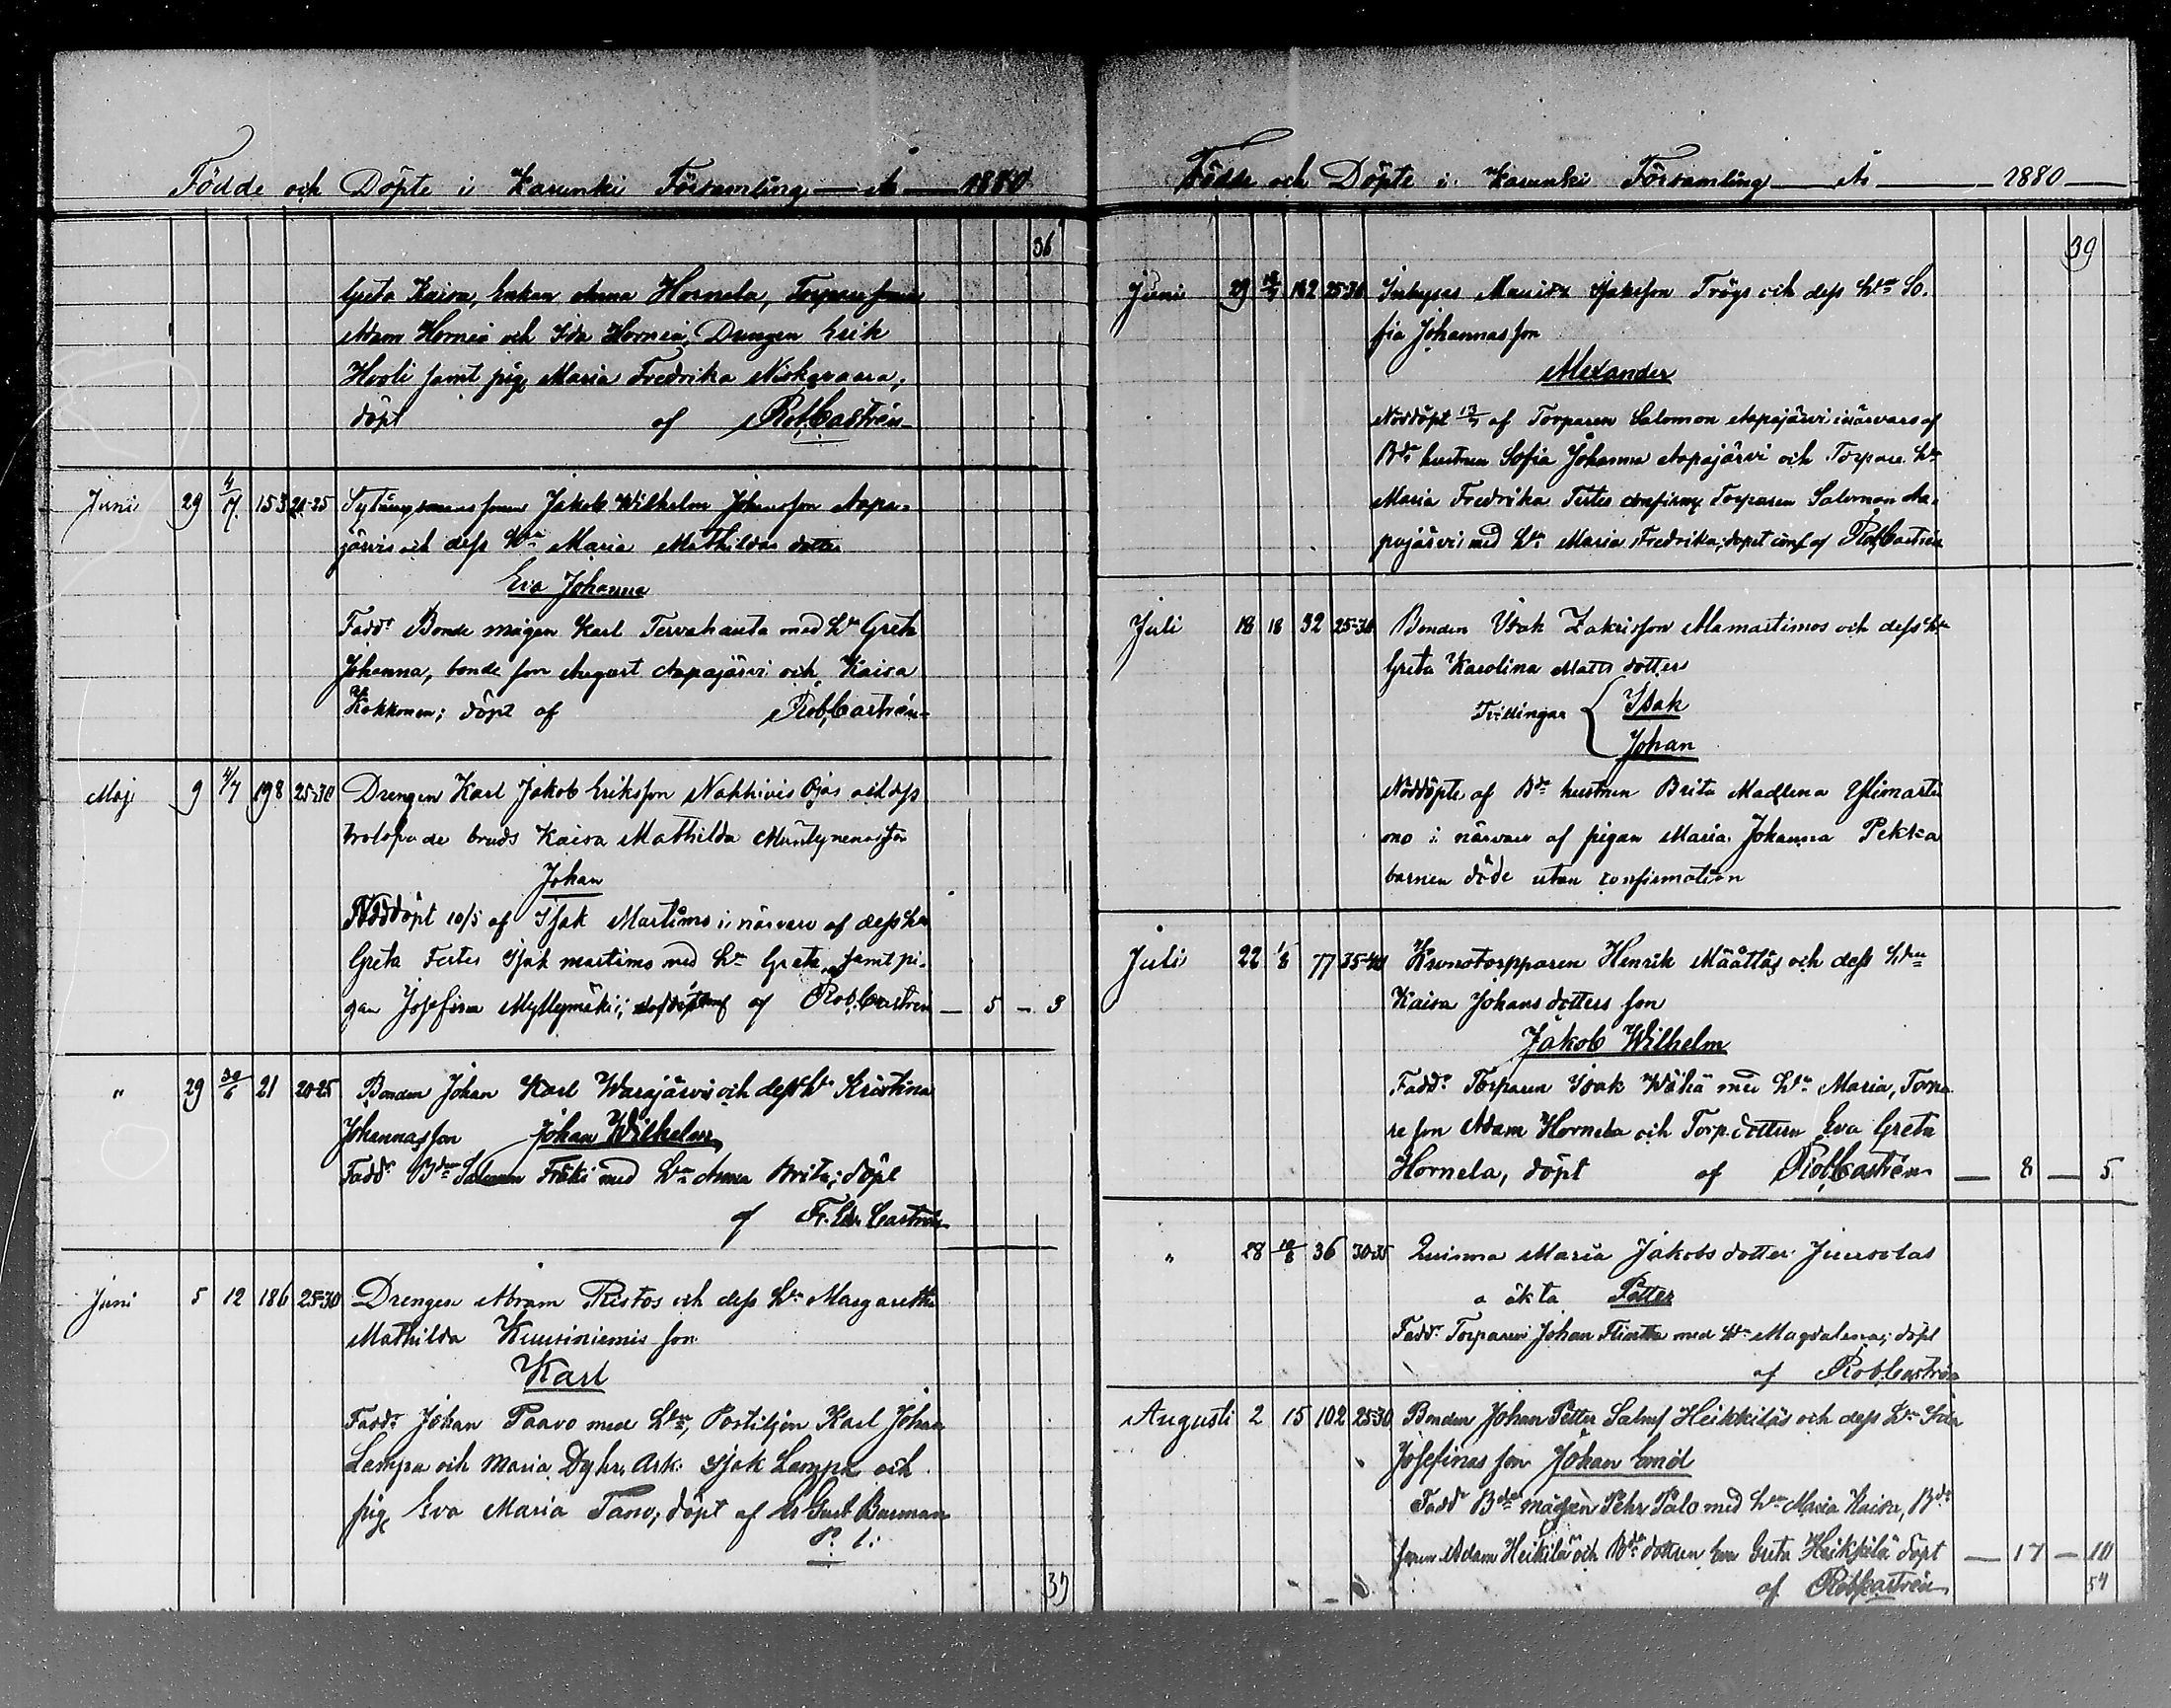 Födde och Döpte i Karunki Församling — År — 1880
36
Greta Kaisa, Enkan Anna Hornela, Torparesonen
Adam Hornia och Ida Hornia, Drengen Erik
Hooli samt pig. Maria Fredrika Niskavaara,
döpt af Rob. Castrén
Juni 29 4/7 153 20-25 Sytningsmans sonen Jakob Wilhelm Johansson Aapa-
järvis och dess Hu Maria Mathildas dotter
Eva Johanna
Fadd: Bonde mågen Karl Tervahauta med Hu Greta
Johanna, bonde son August Aapajärvi och Kaisa
Kokkonen; döpt af Rob. Castrén
Maj 9 4/7 198 25-30 Drengen Karl Jakob Eriksson Nahkivis Ojas och dess
trolofvade bruds Kaisa Mathilda Mäntynenas son
Johan
Nöddöpt 10/5 af Isak Martimo i närvaro af dess hu
Greta Testes Isak martimo med Hu Greta, samt pi-
gan Josefina Myllymäki; af Rob. Castrén — 5 — 3
" 29 30/6 21 20-25 Bonden Johan Karl Warajärvis och dess Hu Kristina
Johannas son Johan Wilhelm
Fadd: Bdn Salomon Fräki med Hu Anna Brita; döpt
af Fr. Edv. Castrén
Juni 5 12 186 25-30 Drengen Abram Ristos och dess Hu Margaretha
Mathilda Kuusiniemis son
Karl
Fadd: Johan Paavo med Hu, Postiljon Karl Johan
Lampa och Maria Dyhr, Ark. Isak Lampa och
pig. Eva Maria Tano, döpt af Gust. Burman
P. l.
39
Födde och Döpte i Karunki Församling — År — 1880 —
39
Juni 29 18/7 182 25-30 Inhyses Maurits Isaksson Trögs och dess Hu So-
fia Johannas son
Alexander
Nöddöpt 17/7 af Torparen Salomon Aapajärvi i närvaro af
Bde hustrun Sofia Johanna Aapajärvi och Torpare Hu
Maria Fredrika Testes confirm. Torparen Salomon Aa-
pajärvi med Hu Maria Fredrika; dopet conf af Rob. Castrén
Juli 18 18 32 25-30 Bonden Isak Zakrisson Alamartimos och dess Hu
Greta Karolina Matts dotter
Tvillingar { Isak
Johan
Nöddöpte af Bde hustrun Brita Madlena Ylimarti
mo i närvaro af pigan Maria Johanna Pekka
barnen döde utan confirmation
Juli 22 1/8 77 35-40 Kronotorpparen Henrik Määttäs och dess Hu
Kaisa Johans dotters son
Jakob Wilhelm
Fadd: Torparen Isak Wähä med Hu Maria, Torpa
re son Adam Hornela och Torp. dottern Eva Greta
Hornela, döpt af Rob. Castrén — 8 — 5
" 28 10/8 36 30-35 Quinna Maria Jakobs dotter Juusolas
o äkta Petter
Fadd: Torparen Johan Flinta med Hu Magdalena; döpt
af Rob. Castrén
Augusti 2 15 102 25-30 Bonden Johan Petter Salms Heikkiläs och dess Hu Ida
Josefinas son Johan Emil
Fadd: Bde mågen Pehr Palo med Hu Maria Kaisa, Bde
sonen Adam Heikilä och Bde dottren Eva Greta Heikkilä döpt — 17 — 10
af Rob. Castrén 54